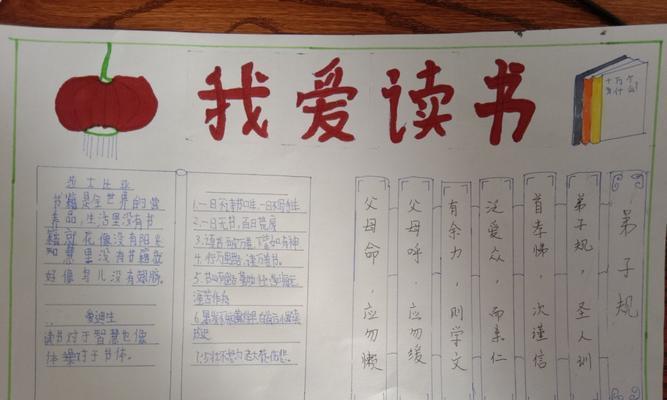 我爱读书
十万个
为什么?
莎士比亚
书籍是全世界的营
养品,生活里没有书
籍就 像没有阳光
智慧里没有书籍就
好像鸟儿没有翅膀。
爱迪生
读书对于智慧也像
体操对于书体。
2.一日无书,百日荒废
3.读书破万卷,下笔如有神
4.行万里路,读万卷书。
7.少壮不努力 老大徒伤悲。
弟子规
弟子规,圣人训
首孝悌,次谨信
泛爱众,而亲仁
有余力,则学文
父母呼,应勿缓
父母命,应勿懒